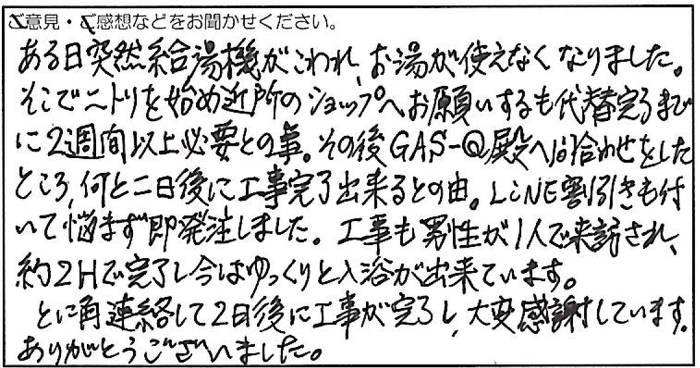 ご意見・ご感想などをお聞かせください。
ある日突然給湯機がこわれ、お湯が使えなくなりました。
そこでニトリを始め近所のショップへお願いするも代替完了まで
に2週間以上必要との事。その後GAS-Q殿へ問合わせをした
ところ、何と二日後に工事完了出来るとの由。LiNE割引きも付
いて悩まず即発注しました。工事も男性が1人で来訪され、
約2Hで完了し今はゆっくりと入浴が出来ています。
とに角連絡して2日後に工事が完了し、大変感謝しています。
ありがとうございました。